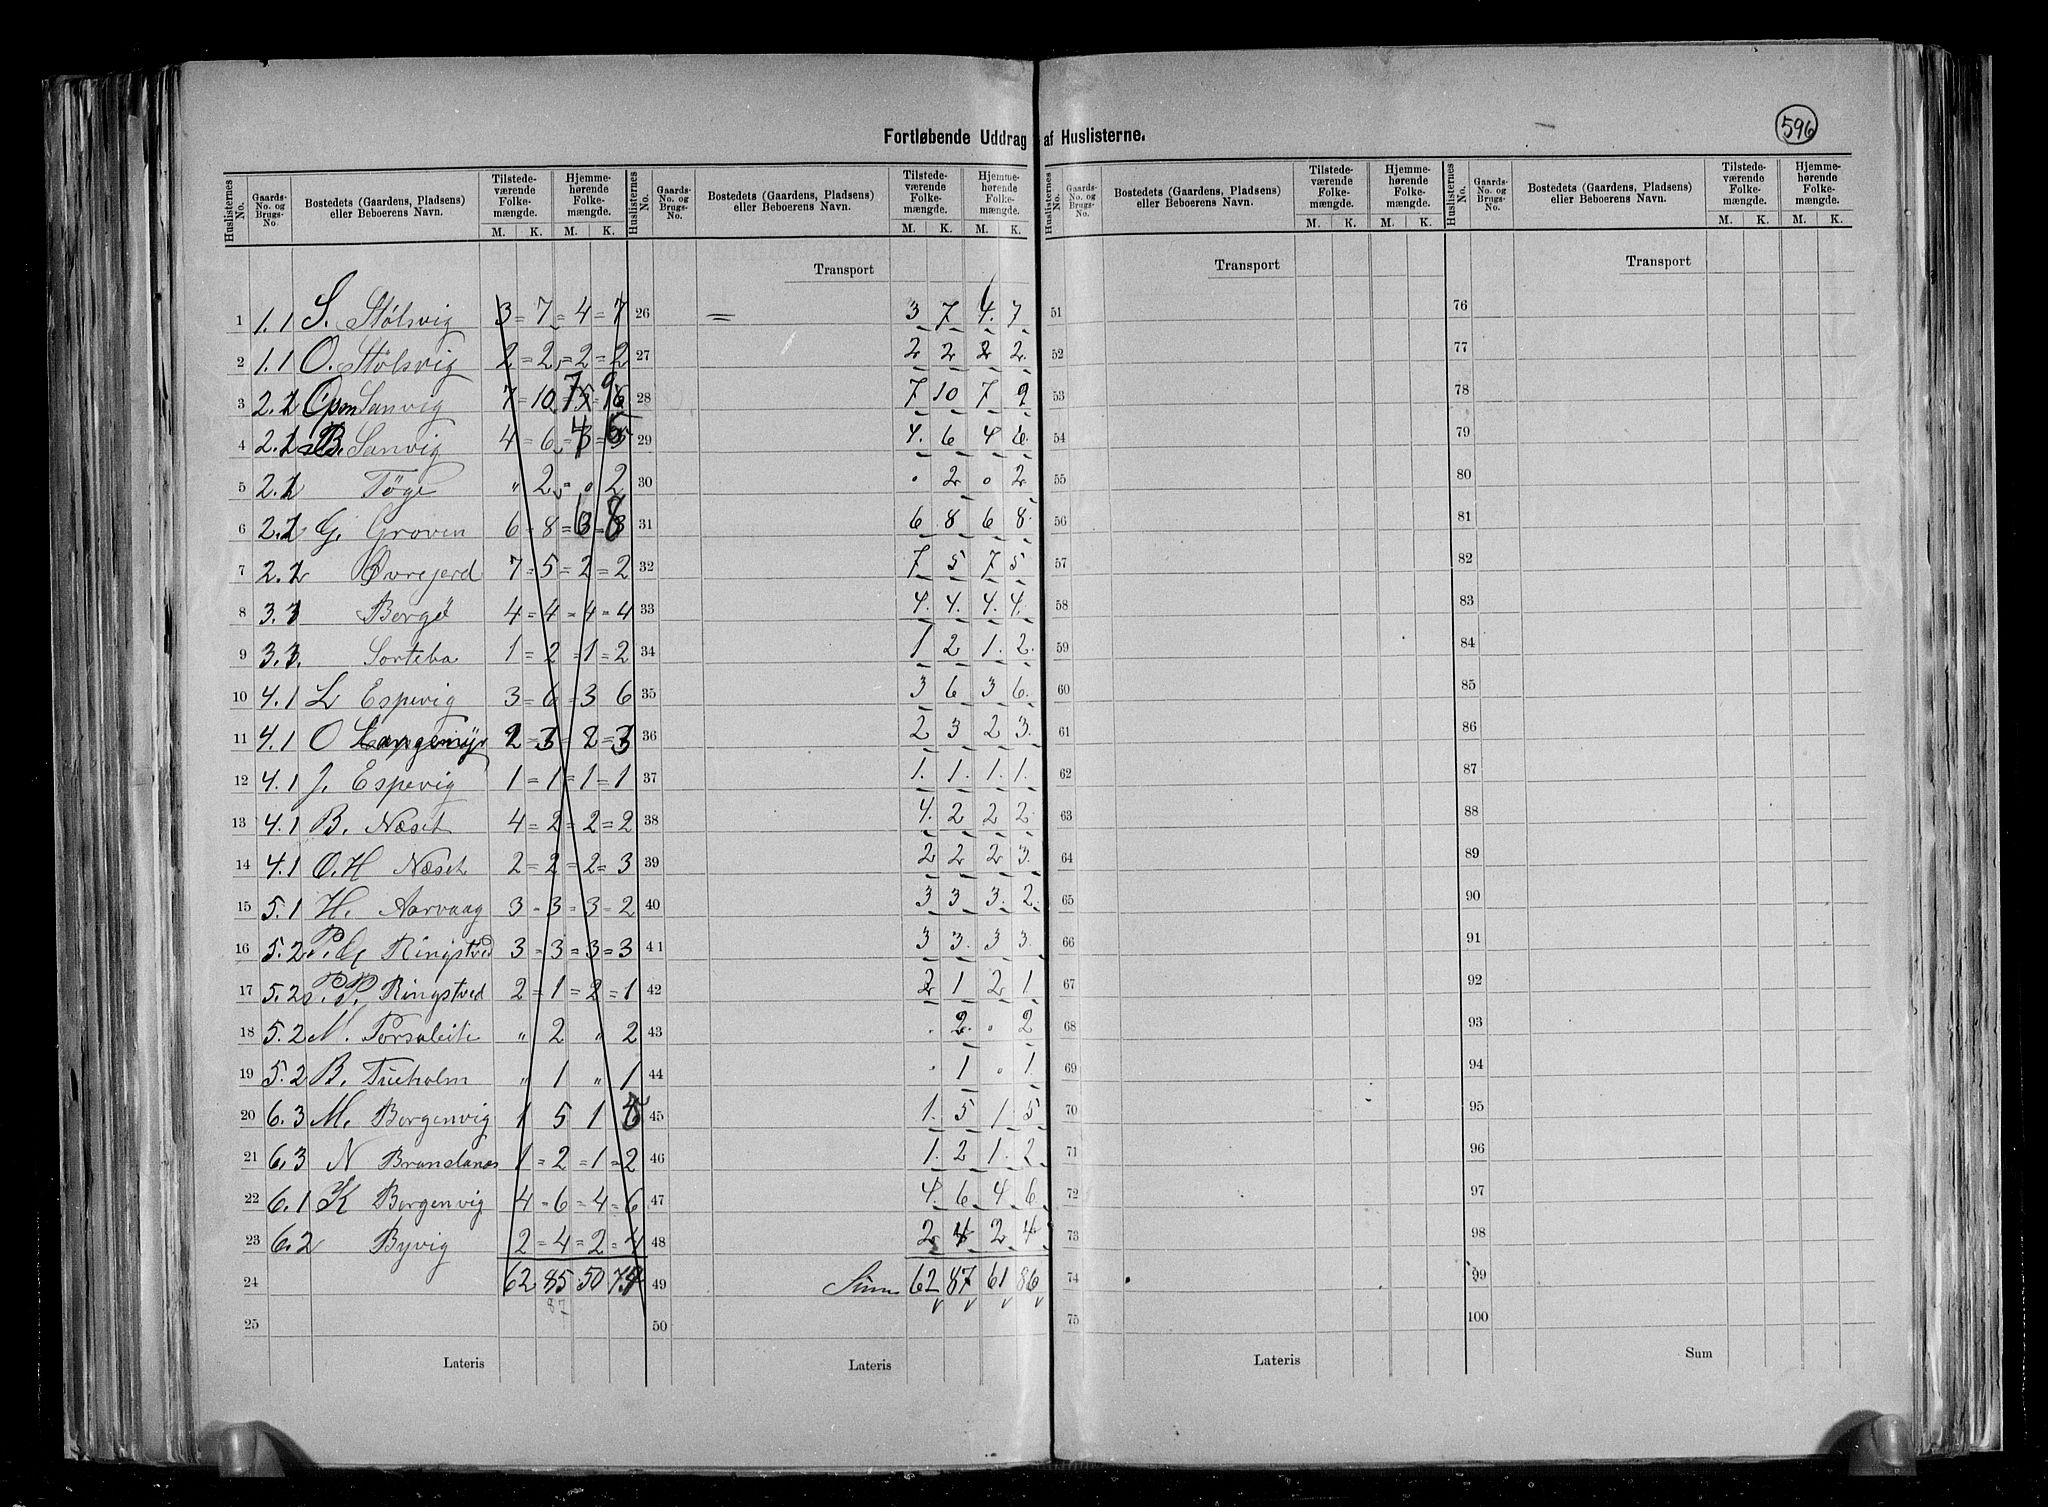 596
Fortløbende Uddrag af Huslisternes.
Huslisternes No. Gaards-No. og Brugs-No. Bostedets (Gaardens, Pladsens) eller Beboerens Navn. Tilstedeværende Folkemængde. M. K. Hjemmehørende Folkemængde. M. K.
Huslisternes No. Gaards-No. og Brugs-No. Bostedets (Gaardens, Pladsens) eller Beboerens Navn. Tilstedeværende Folkemængde. M. K. Hjemmehørende Folkemængde. M. K.
Huslisternes No. Gaards-No. og Brugs-No. Bostedets (Gaardens, Pladsens) eller Beboerens Navn. Tilstedeværende Folkemængde. M. K. Hjemmehørende Folkemængde. M. K.
Huslisternes No. Gaards-No. og Brugs-No. Bostedets (Gaardens, Pladsens) eller Beboerens Navn. Tilstedeværende Folkemængde. M. K. Hjemmehørende Folkemængde. M. K.
Transport Transport Transport
1 1.1 S. Stølsvig 3 = 7 = 4 = 7 26 = 3 7 4. 7 51 76
2 1.1 O. Stølsvig 2 = 2 = 2 = 2 27 2 2 2 2. 52 77
3 2.1 Sanvig 7 = 10 7 9 28 7 10 7 9 53 78
4 2.1 B. Sanvig 4 = 6 = 4 6 29 4. 6 4 6. 54 79
5 2.1 Töge " 2 = " 2 30 . 2 . 2 55 80
6 2.1 G. Groven 6 = 8 = 6 8 31 6 8 6 8. 56 81
7 2.1 Øvrejerd 7 = 5 = 2 = 2 32 7 5 7 5 57 82
8 3.1 Bergö 4 = 4 = 4 = 4 33 4. 4. 4. 4. 58 83
9 3.3. Sortebø 1 = 2 = 1 = 2 34 1 2 1. 2. 59 84
10 4.1 L Espevig 3 = 6 = 3 6 35 3 6 3 6. 60 85
11 4.1 O Langemyr 2 = 3 = 2 = 3 36 2 3 2 3. 61 86
12 4.1 J. Espevig 1 = 1 = 1 = 1 37 1. 1. 1. 1. 62 87
13 4.1 B. Næset 4 = 2 = 2 = 2 38 4. 2 2 2 63 88
14 4.1 O.H Næset 2 = 2 = 2 = 3 39 2 2 2 3. 64 89
15 5.1 H. Aarvaag 3 - 3 = 3 - 2 40 3 3 3. 2. 65 90
16 5.2 Ringstved 3 = 3 = 3 = 3 41 3 3. 3 3. 66 91
17 5.2 P.P. Ringstved 2 = 1 = 2 = 1 42 2 1 2 1 67 92
18 5.2 M. Porsaleite " 2 " 2 43 . 2. . 2 68 93
19 5.2 B. Tueholm " 1 " 1 44 . 1 . 1 69 94
20 6.3 M. Borgenvig 1 5 1 5 45 1. 5 1 5 70 95
21 6.3 N Brandanes 1 = 2 = 1 = 2 46 1. 2 1. 2 71 96
22 6.1 K Borgenvig 4 = 6 = 4 = 6 47 4. 6 4 6 72 97
23 6.2 Byvig 2 = 4 = 2 = 4 48 2 4 2 4 73 98
24 62 85 50 79 49 Sum 62 87 61 86 74 99
25 87 50 75 100
Lateris Lateris Lateris Sum